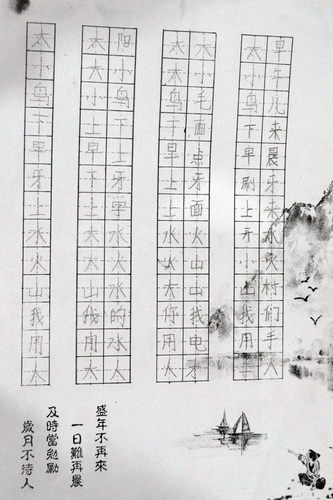 太 太阳 太太
小 大小 大小 小牛
鸟 小鸟 鸟毛 鸟儿
下 上下 下面 下来
早 早上 早点 早晨
牙 下牙 上牙 刷牙
上 上学 上面 上来
水 大水 水火 开水
火 大火 火山 小火
山 山水 大山 山村
我 我的 你我 我们
用 用水 用电 用手
人 大人
盛年不再來
一日難再晨
及時當勉勵
歲月不待人